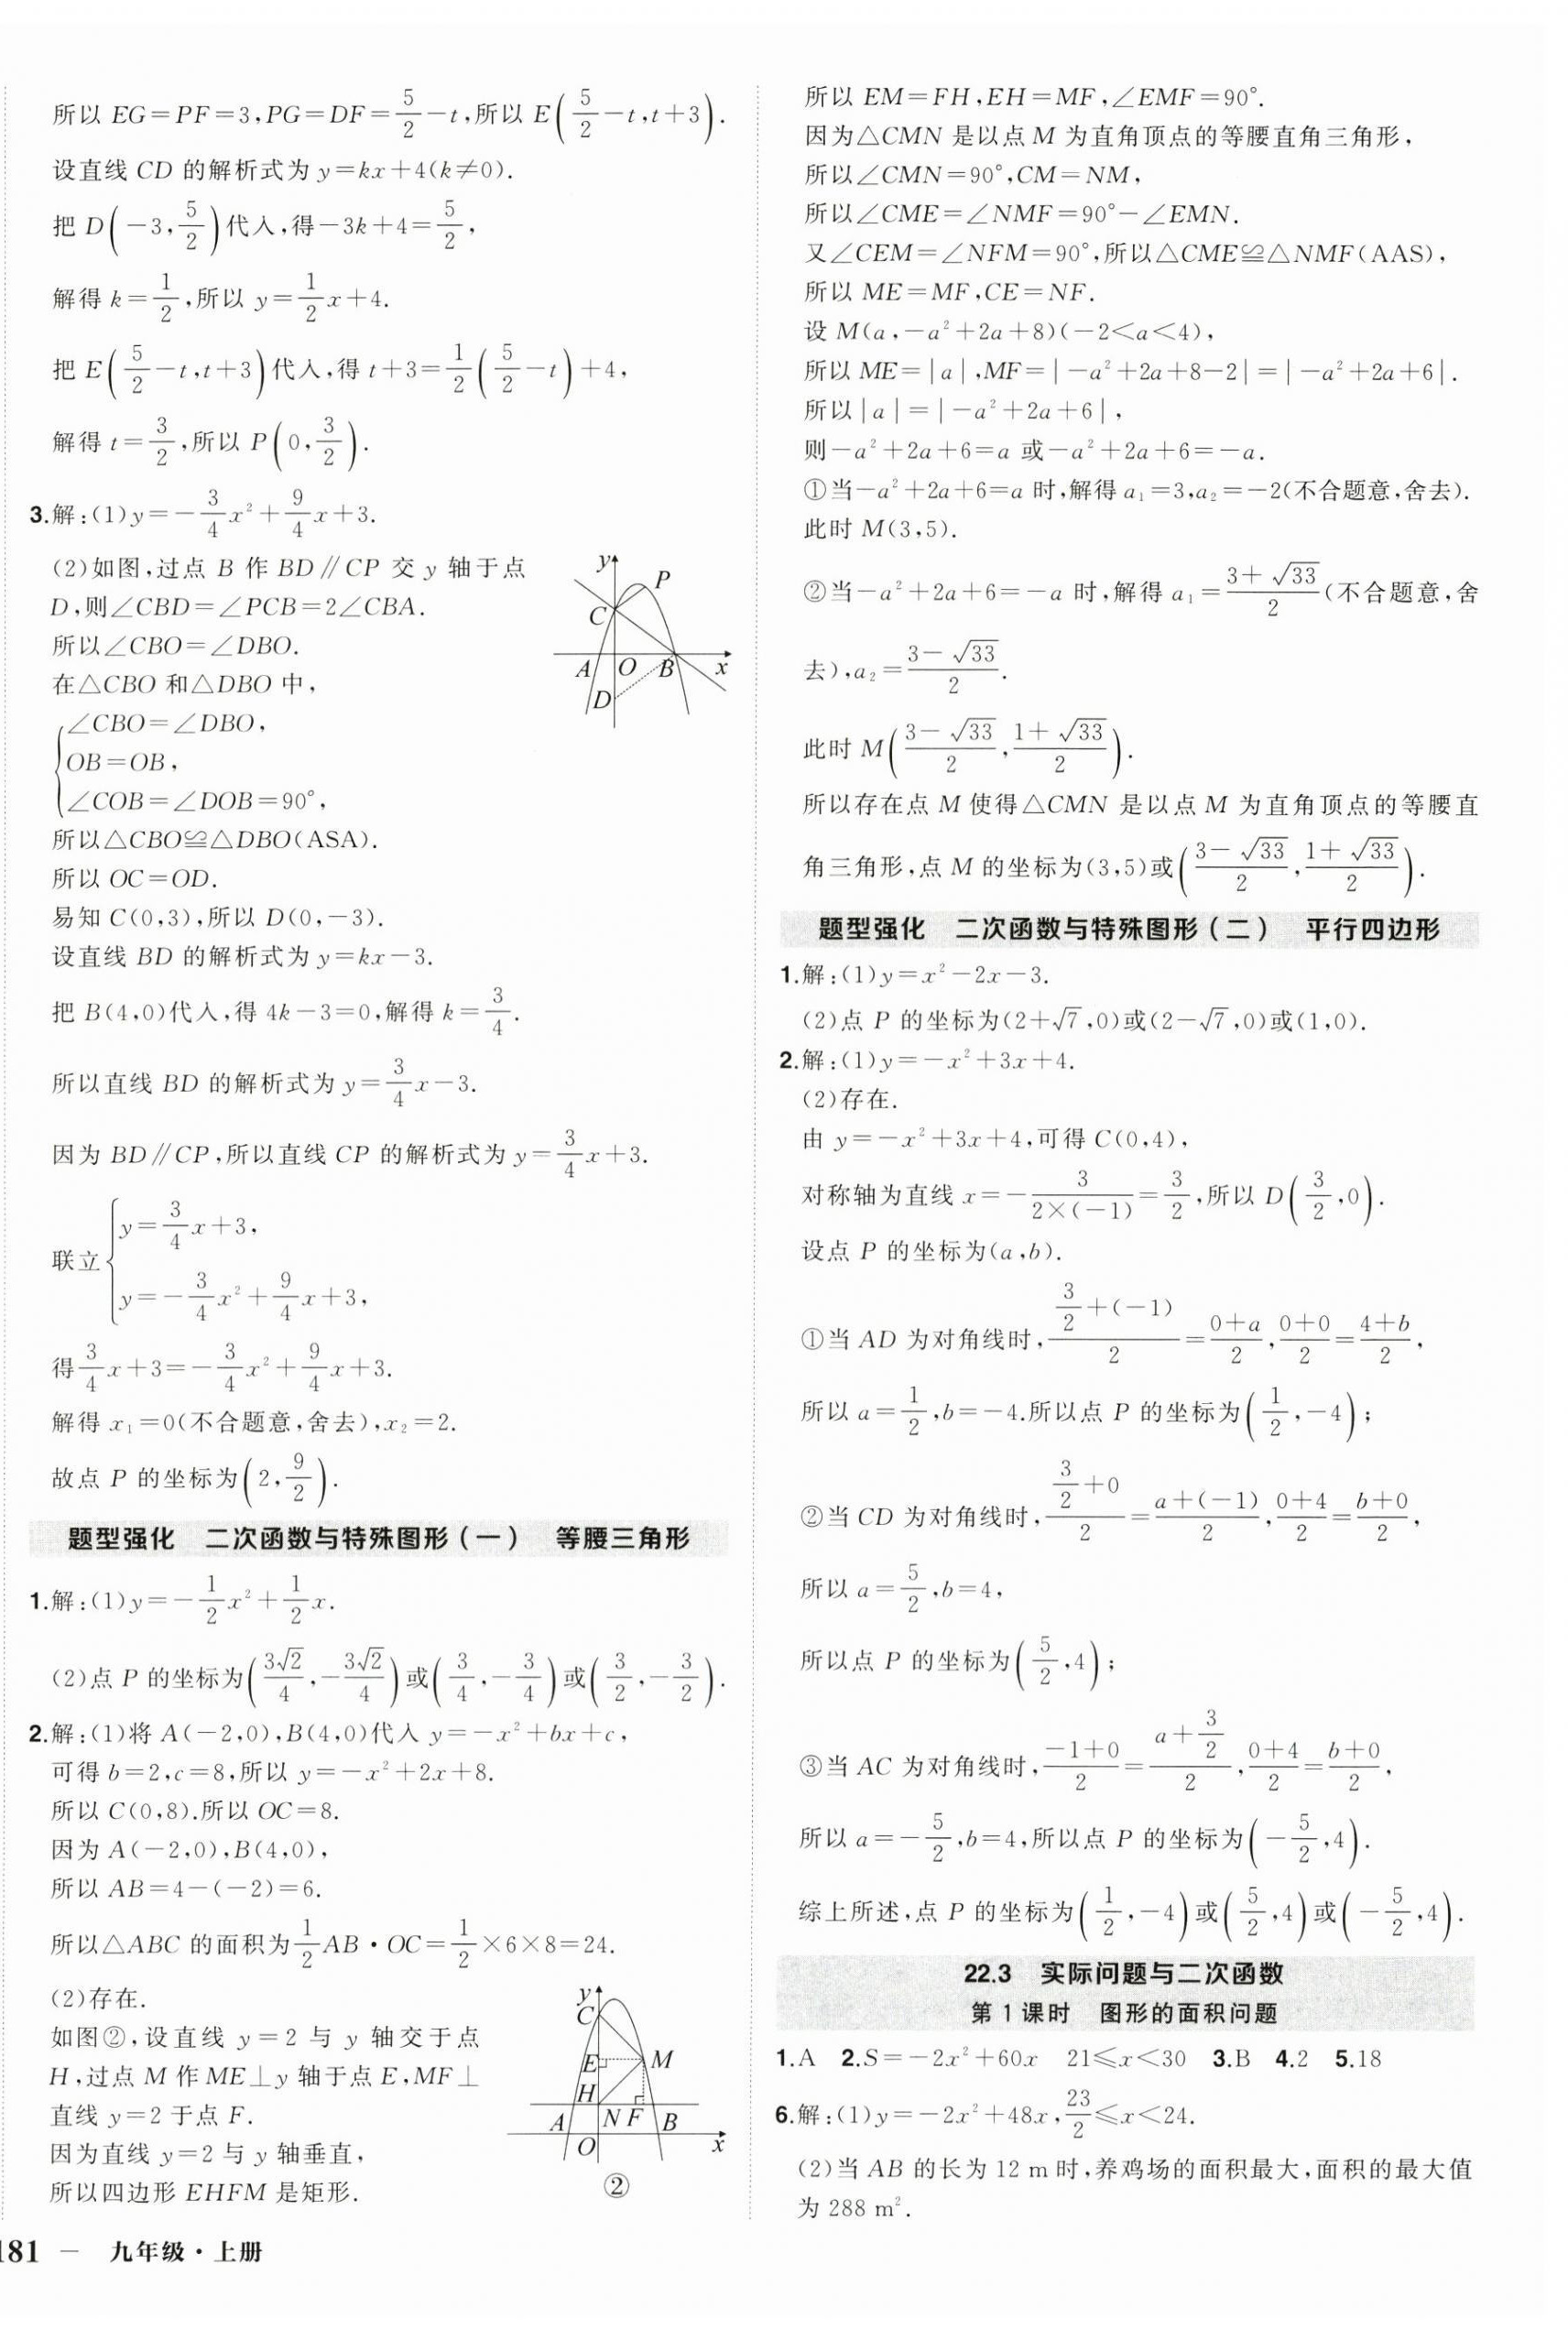 所以 EG=PF=3,PG=DF=5/2-t,所以 E(5/2-t,t+3).
设直线 CD 的解析式为 y=kx+4(k≠0).
把 D(-3,5/2)代入,得-3k+4=5/2,
解得 k=1/2,所以 y=1/2x+4.
把 E(5/2-t,t+3)代入,得 t+3=1/2(5/2-t)+4,
解得 t=3/2,所以 P(0,3/2).
3.解:(1)y=-3/4x²+9/4x+3.
(2)如图,过点 B 作 BD∥CP 交 y 轴于点
D,则∠CBD=∠PCB=2∠CBA.
所以∠CBO=∠DBO.
在△CBO 和△DBO 中,
∠CBO=∠DBO,
OB=OB,
∠COB=∠DOB=90°,
y
P
C
A
O
B
x
D
所以△CBO≌△DBO(ASA).
所以 OC=OD.
易知 C(0,3),所以 D(0,-3).
设直线 BD 的解析式为 y=kx-3.
把 B(4,0)代入,得 4k-3=0,解得 k=3/4.
所以直线 BD 的解析式为 y=3/4x-3.
因为 BD∥CP,所以直线 CP 的解析式为 y=3/4x+3.
联立{y=3/4x+3,
y=-3/4x²+9/4x+3,
得3/4x+3=-3/4x²+9/4x+3.
解得 x₁=0(不合题意,舍去),x₂=2.
故点 P 的坐标为(2,9/2).
题型强化 二次函数与特殊图形(一) 等腰三角形
1.解:(1)y=-1/2x²+1/2x.
(2)点 P 的坐标为(3√2/4,-3√2/4)或(3/4,-3/4)或(3/2,-3/2).
2.解:(1)将 A(-2,0),B(4,0)代入 y=-x²+bx+c,
可得 b=2,c=8,所以 y=-x²+2x+8.
所以 C(0,8).所以 OC=8.
因为 A(-2,0),B(4,0),
所以 AB=4-(-2)=6.
所以△ABC 的面积为1/2AB·OC=1/2×6×8=24.
(2)存在.
如图②,设直线 y=2 与 y 轴交于点
H,过点 M 作 ME⊥y 轴于点 E,MF⊥
直线 y=2 于点 F.
因为直线 y=2 与 y 轴垂直,
所以四边形 EHFM 是矩形.
y
C
E
M
H
A
N
F
B
O
x
②
181 — 九年级·上册
所以 EM=FH,EH=MF,∠EMF=90°.
因为△CMN 是以点 M 为直角顶点的等腰直角三角形,
所以∠CMN=90°,CM=NM,
所以∠CME=∠NMF=90°-∠EMN.
又∠CEM=∠NFM=90°,所以△CME≌△NMF(AAS),
所以 ME=MF,CE=NF.
设 M(a,-a²+2a+8)(-2<a<4),
所以 ME=|a|,MF=|-a²+2a+8-2|=|-a²+2a+6|.
所以|a|=|-a²+2a+6|,
则-a²+2a+6=a 或-a²+2a+6=-a.
①当-a²+2a+6=a 时,解得 a₁=3,a₂=-2(不合题意,舍去).
此时 M(3,5).
②当-a²+2a+6=-a 时,解得 a₁=(3+√33)/2(不合题意,舍
去),a₂=(3-√33)/2.
此时 M((3-√33)/2,(1+√33)/2).
所以存在点 M 使得△CMN 是以点 M 为直角顶点的等腰直
角三角形,点 M 的坐标为(3,5)或((3-√33)/2,(1+√33)/2).
题型强化 二次函数与特殊图形(二) 平行四边形
1.解:(1)y=x²-2x-3.
(2)点 P 的坐标为(2+√7,0)或(2-√7,0)或(1,0).
2.解:(1)y=-x²+3x+4.
(2)存在.
由 y=-x²+3x+4,可得 C(0,4),
对称轴为直线 x=-3/(2×(-1))=3/2,所以 D(3/2,0).
设点 P 的坐标为(a,b).
①当 AD 为对角线时,(3/2+(-1))/2=(0+a)/2,(0+0)/2=(4+b)/2,
所以 a=1/2,b=-4.所以点 P 的坐标为(1/2,-4);
②当 CD 为对角线时,(3/2+0)/2=(a+(-1))/2,(0+4)/2=(b+0)/2,
所以 a=5/2,b=4,
所以点 P 的坐标为(5/2,4);
③当 AC 为对角线时,(-1+0)/2=(a+3/2)/2,(0+4)/2=(b+0)/2,
所以 a=-5/2,b=4,所以点 P 的坐标为(-5/2,4).
综上所述,点 P 的坐标为(1/2,-4)或(5/2,4)或(-5/2,4).
22.3 实际问题与二次函数
第 1 课时 图形的面积问题
1.A 2.S=-2x²+60x 21≤x<30 3.B 4.2 5.18
6.解:(1)y=-2x²+48x,23/2≤x<24.
(2)当 AB 的长为 12 m 时,养鸡场的面积最大,面积的最大值
为 288 m².